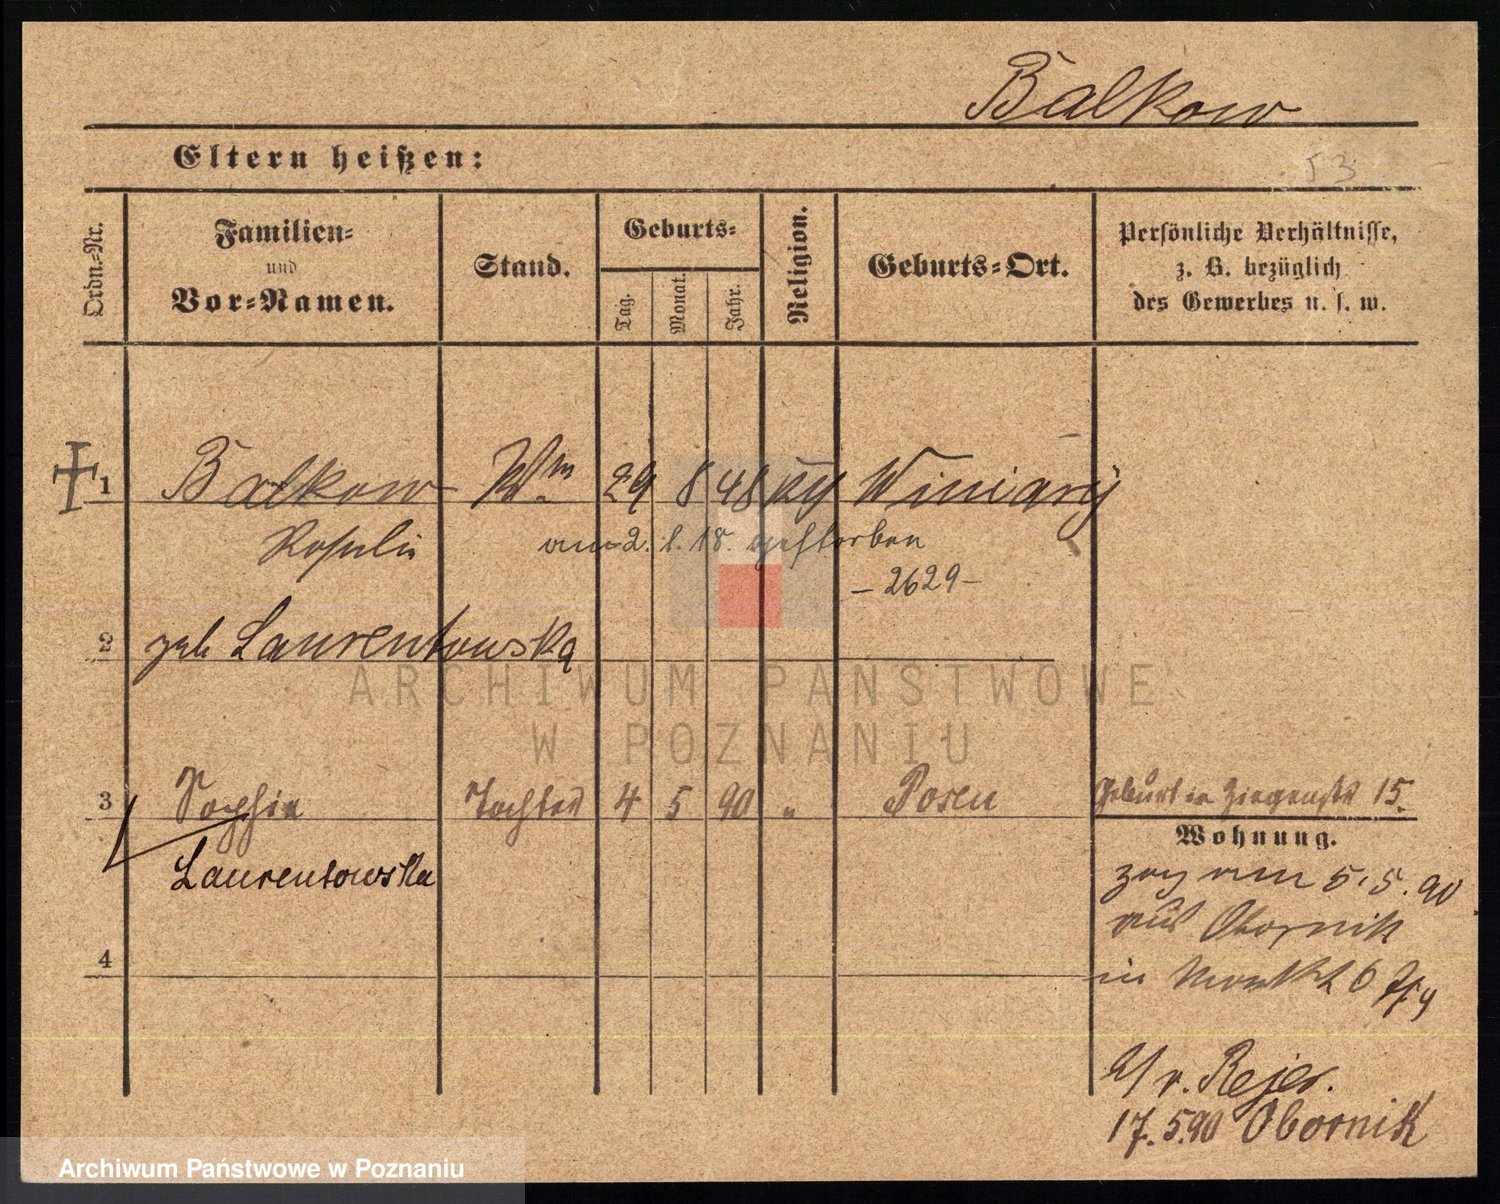 Balkow
Eltern heißen:
53
Ordn.-Nr.
Familien-
und
Vor-Namen.
Stand.
Geburts-
Tag.
Monat.
Jahr.
Religion.
Geburts-Ort.
Persönliche Verhältnisse,
z. B. bezüglich
des Gewerbes u. s. w.
1 Balkow Wm 29 8 48 Winiary
Rosalie am 2. 1. 18. gestorben
- 2629 -
2 geb Laurentowska
ARCHIWUM PAŃSTWOWE
W POZNANIU
3 Sophie Tochter 4 5 90 " Posen
15.
Wohnung.
Laurentowska
zog am 5.5.90
aus Obornik
4
in Markt 6
v. Rejer.
17.5.90 Obornik
Archiwum Państwowe w Poznaniu